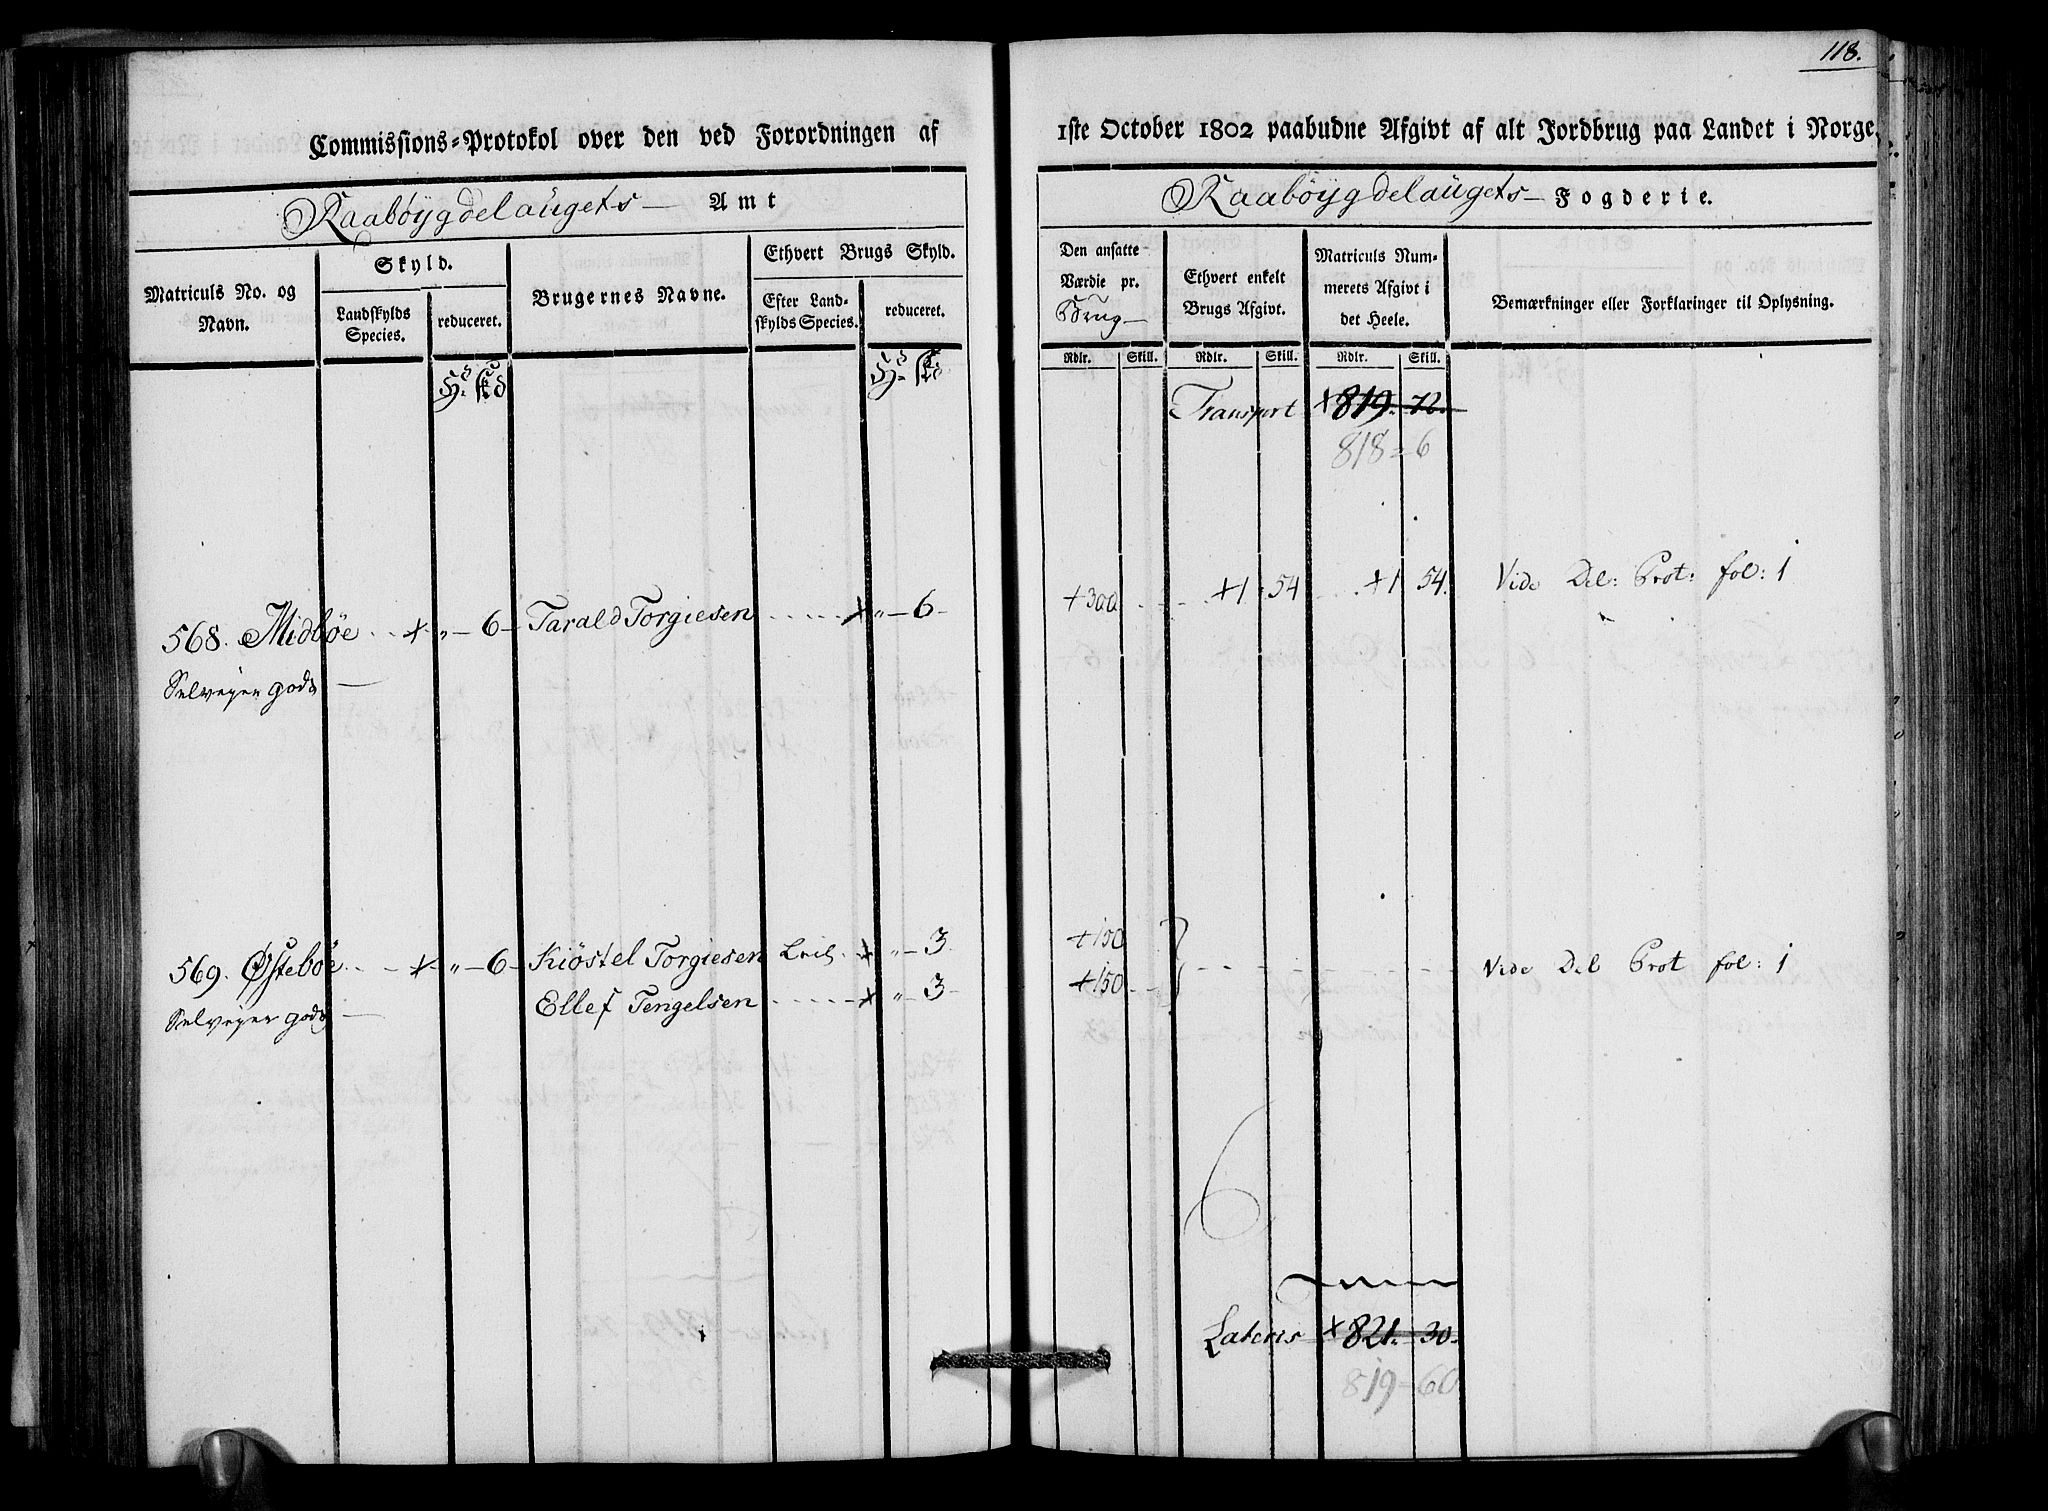 118.
Commissions-Protokol over den ved Forordningen af 1ste October 1802 paabudne Afgivt af alt Jordbrug paa Landet i Norge.
Raabøygdelaugets Amt
Raabøygdelaugets Fogderie.
Matriculs No. og Navn.
Skyld.
Landskylds Species.
reduceret.
Brugernes Navne.
Ethvert Brugs Skyld.
Efter Landskylds Species.
reduceret.
Den ansatte Værdie pr. Brug
Ethvert enkelt Brugs Afgivt.
Matriculs Nummerets Afgivt i det Heele.
Bemærkninger eller Forklaringer til Oplysning.
Rdlr. Skill. Rdlr. Skill. Rdlr. Skill.
Transport +819. 72.
818 = 6
568. Midbøe + „ 6 Tarald Torgiesen + „ 6 +300 +1 54 +1 54. Vide Del: Prot: fol: 1
Selveyer gods
569. Østebøe + „ 6 Kiøstel Torgiesen + „ 3 +150 Vide Del Prot fol: 1
Selveyer gods Ellef Tengelsen + „ 3 +150
Lateris +821. 30.
819 = 60